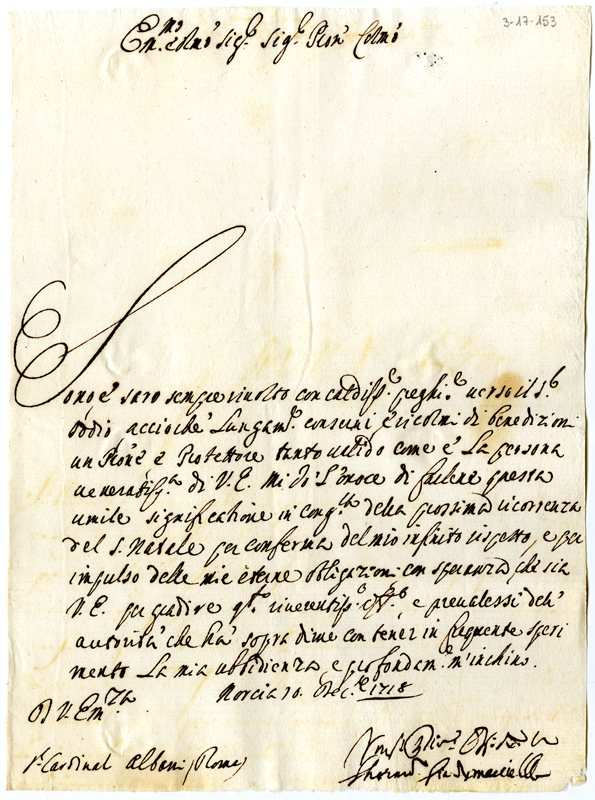 3-17-153
Em.mo e Rmo Sig.r Sig.r Pron Colmo
Sono e saro sempre rivolto con caldiss.e preghi.e verso il S.r
Iddio accioche lungam.e conservi e ricolmi di benedizioni
un Prone e Protettore tanto valido come è La persona
veneratiss.a di V. E. Mi dò L'onore di farlene questa
umile significatione in cong.ra della prossima ricorrenza
del S. Natale per conferma del mio infinito rispetto, e per
impulso delle mie eterne obligazioni con speranza che sia
V. E. per gradire q.to riverentiss.o e prevalersi dell'
autorità che hà sopra di me con tener in frequente speri
mento La mia ubbidienza e profondam.e m'inchino.
Di V. Em.za
Norcia 10. Dec.e 1718
S.r Cardinal Albani (Roma)